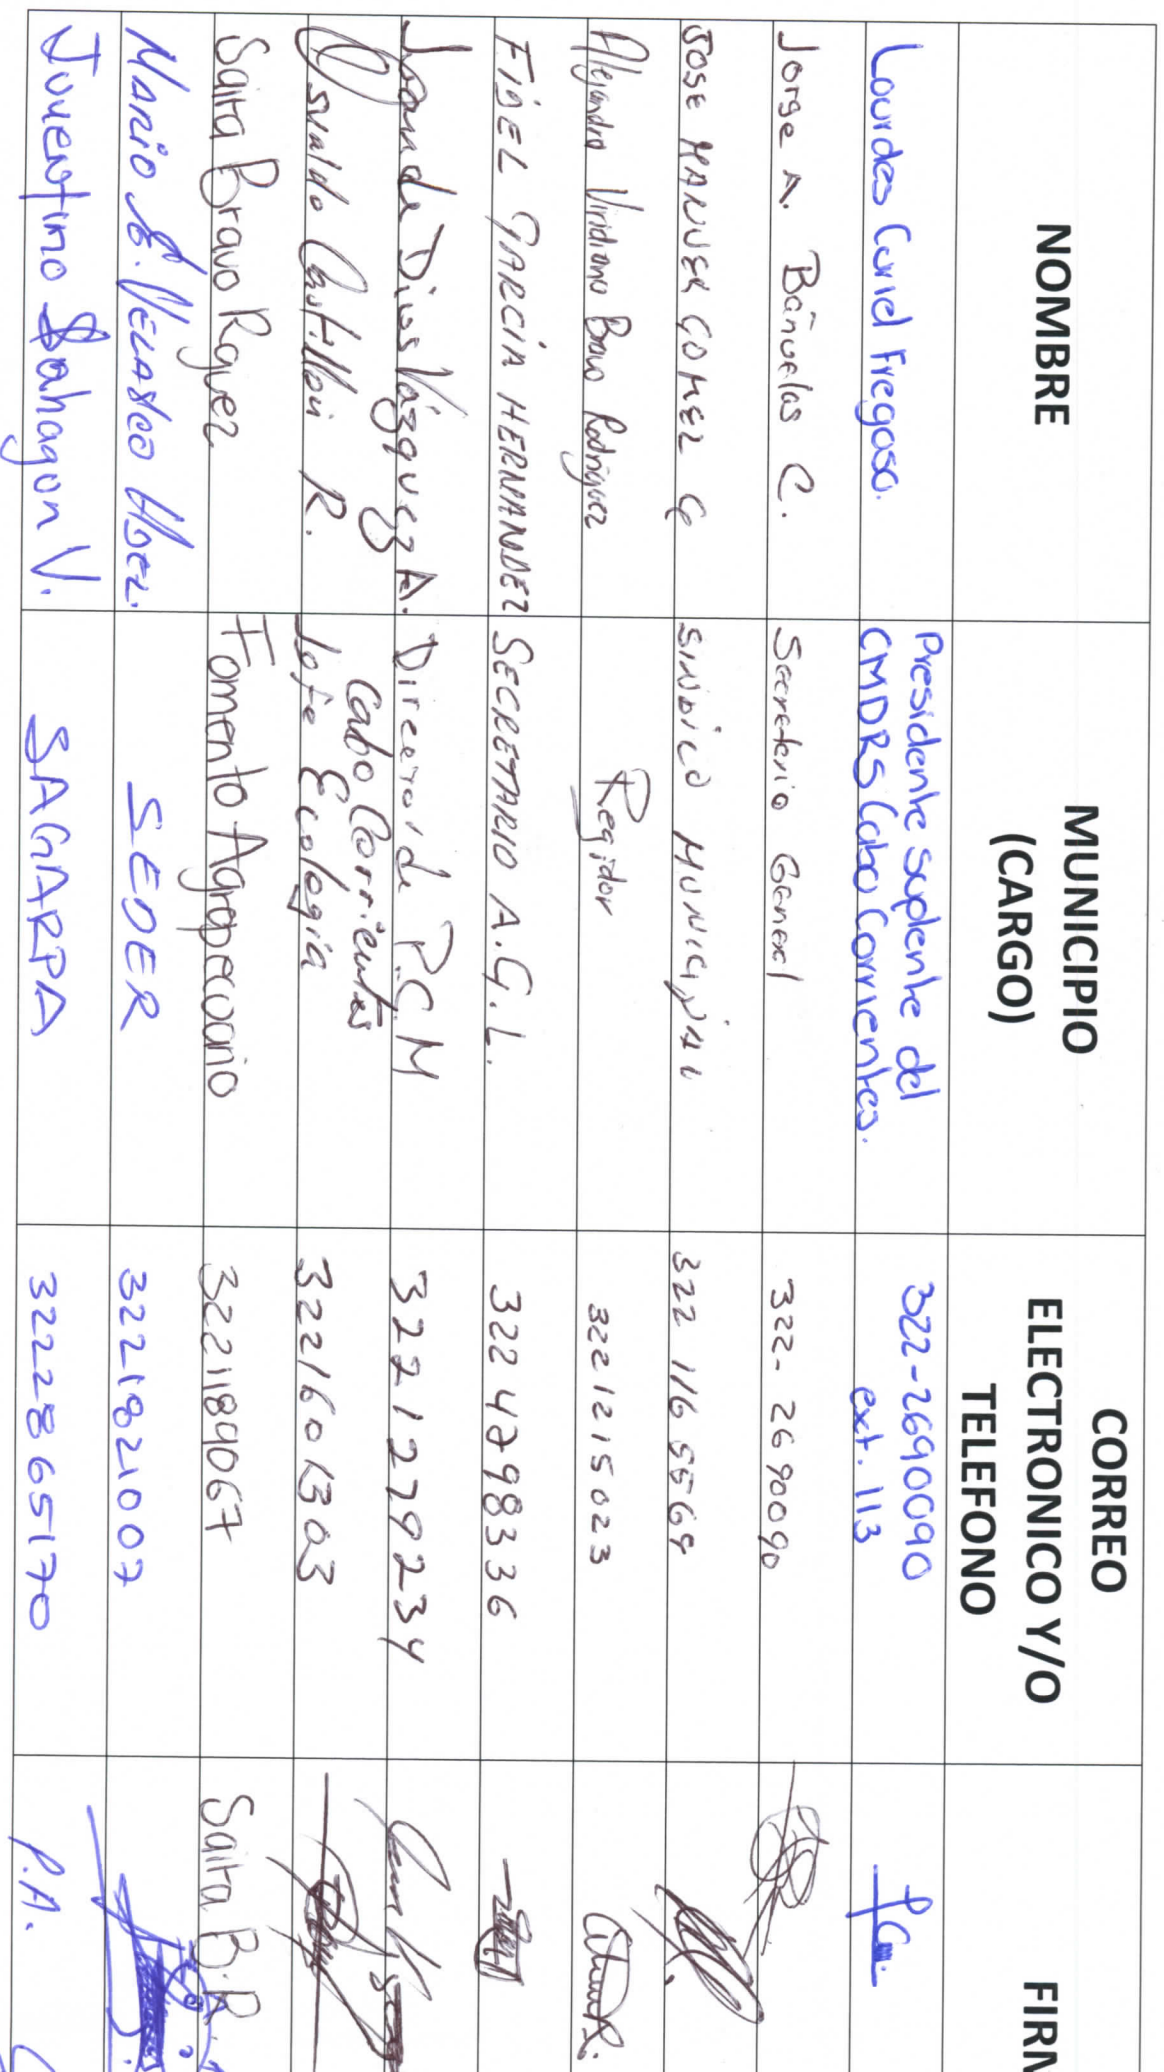 NOMBRE
MUNICIPIO
(CARGO)
CORREO
ELECTRONICO Y/O
TELEFONO
FIRM
Lourdes Curiel Fregoso.
Presidente suplente del
CMDRS Cabo Corrientes.
322-2690090
ext. 113
Jorge A. Bañuelos C.
Secretario General
322- 2690090
JOSE MANUEL GOMEZ G
SINDICO MUNICIPAL
322 116 5569
Alejandro Viridiano Bravo Rodríguez
Regidor
322 1215023
FIDEL GARCIA HERNANDEZ
SECRETARIO A.G.L.
322 4298336
Juan de Dios Vázquez A.
Director de P.C. M
Cabo Corrientes
3221279234
Osvaldo Castillón R.
Jefe Ecología
3221601303
Saira Bravo Rguez
Fomento Agropecuario
3221189067
Saira B.R
MARIO E. VELASCO Hdez.
SEDER
3221821007
Juventino Sahagun V.
SAGARPA
3222865170
P.A.